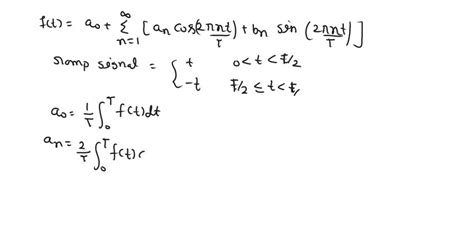 f(t) = a₀ + ∞Σn=1 [an cos(2πnt/T) + bn sin (2πnt/T)]
ramp signal = { t 0 < t < T/2
-t T/2 ≤ t < T,
a₀ = 1/T ∫₀ᵀ f(t) dt
an = 2/T ∫₀ᵀ f(t) c